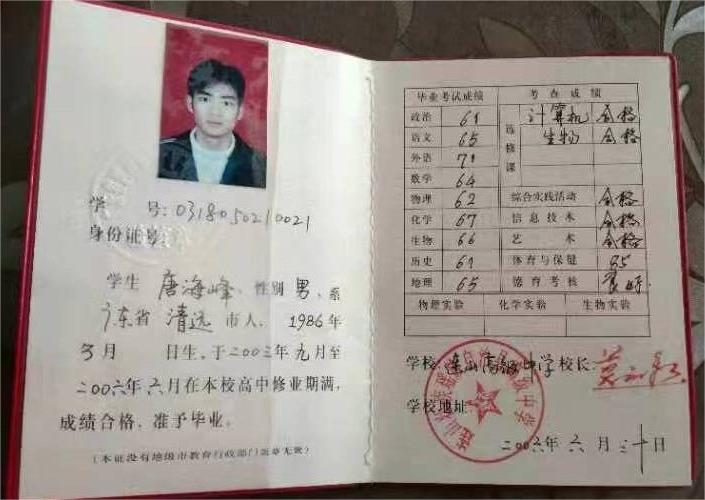 学 号:0318050210021
身份证号:
学生 唐海峰,性别 男,系
广东省 清远 市人, 1986 年
3月 日生,于二00三年九月至
二00六年六月在本校高中修业期满,
成绩合格,准予毕业。
(本证没有地级市教育行政部门验章无效)
毕业考试成绩 考查成绩
政治 61 选修课 计算机 合格
语文 65 生物 合格
外语 71
数学 64
物理 62 综合实践活动 合格
化学 67 信息技术 合格
生物 66 艺术 合格
历史 61 体育与保健 85
地理 65 德育考核 良好
物理实验 化学实验 生物实验
学校: 连山高级中学 校长:
学校地址:
二00六年 六 月 三十 日